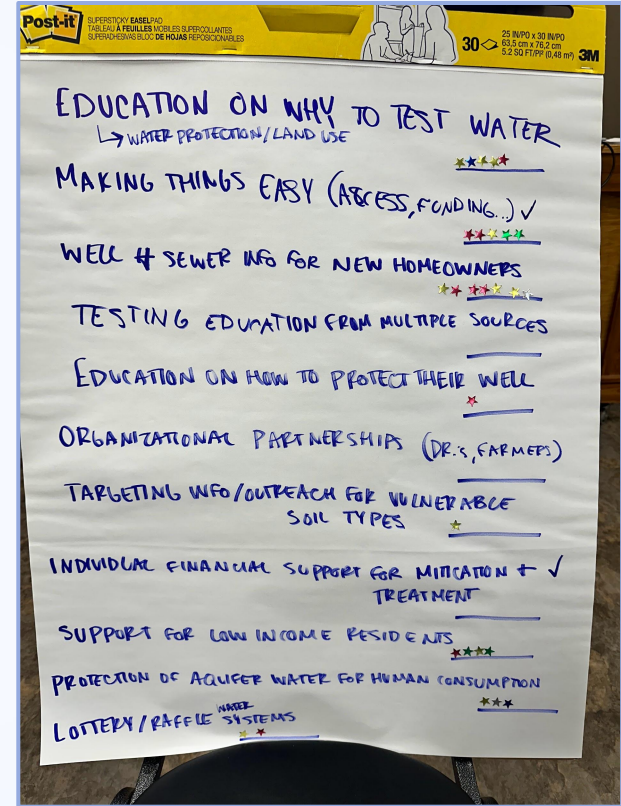 Post-it
SUPERSTICKY EASELPAD
TABLEAU À FEUILLES MOBILES SUPERCOLLANTES
SUPERADHESIVAS BLOC DE HOJAS REPOSICIONABLES
30
25 IN/PO x 30 IN/PO
63,5 cm x 76,2 cm
5.2 SQ FT/PI² (0,48 m²)
3M
EDUCATION ON WHY TO TEST WATER
↳ WATER PROTECTION/LAND USE
MAKING THINGS EASY (ACCESS, FUNDING..) ✓
WELL # SEWER INFO FOR NEW HOMEOWNERS
TESTING EDUCATION FROM MULTIPLE SOURCES
EDUCATION ON HOW TO PROTECT THEIR WELL
ORGANIZATIONAL PARTNERSHIPS (DR.'s, FARMERS)
TARGETING INFO/OUTREACH FOR VULNERABLE
SOIL TYPES
INDIVIDUAL FINANCIAL SUPPORT FOR MITIGATION + ✓
TREATMENT
SUPPORT FOR LOW INCOME RESIDENTS
PROTECTION OF AQUIFER WATER FOR HUMAN CONSUMPTION
LOTTERY/RAFFLE WATER SYSTEMS